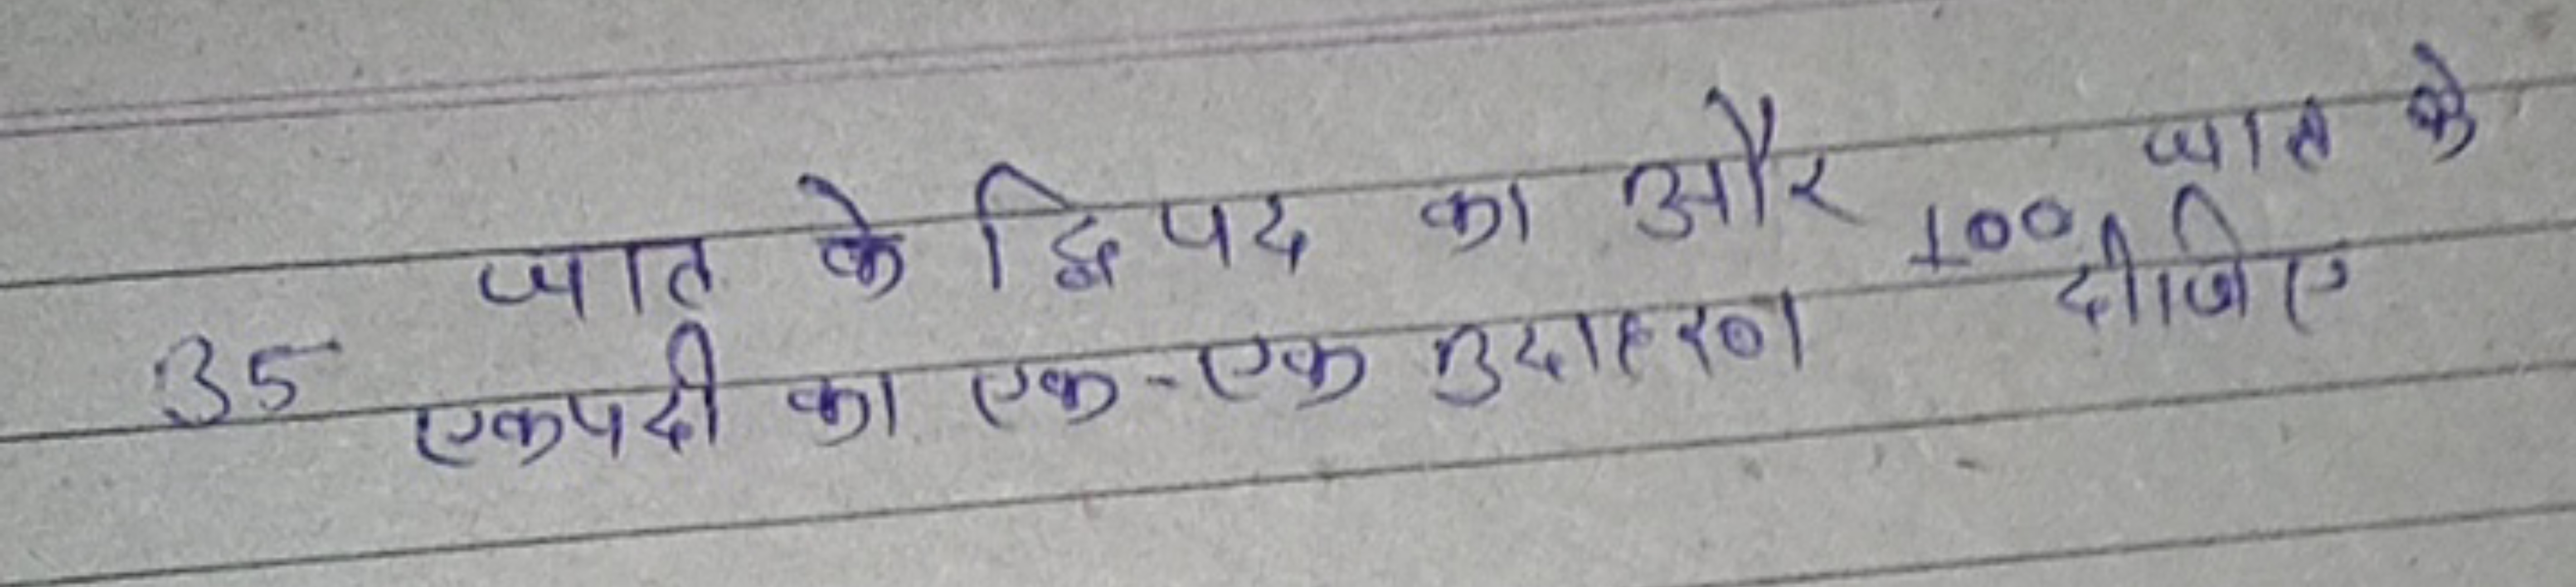 35 घात के द्विपद का और 100 घात के
एकपदी का एक-एक उदाहरण दीजिए